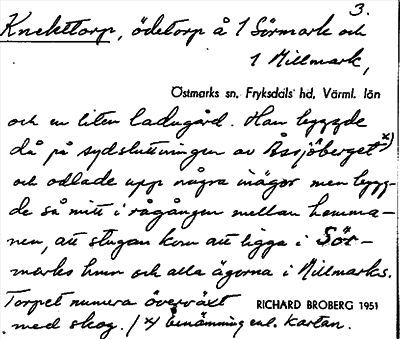 3.
Knekttorp, ödetorp å 1 Sörmark och
1 Millmark,
Östmarks sn, Fryksdals hd, Värml. län
och en liten ladugård. Han byggde
då på sydsluttningen av Åssjöberget x)
och odlade upp några inägor men bygg-
de så mitt i rågången mellan hemma-
nen, att stugan kom att ligga i Sör-
marks hmn och alla ägorna i Millmarks.
Torpet numera överväxt RICHARD BROBERG 1951
med skog. / x) benämning enl. kartan.